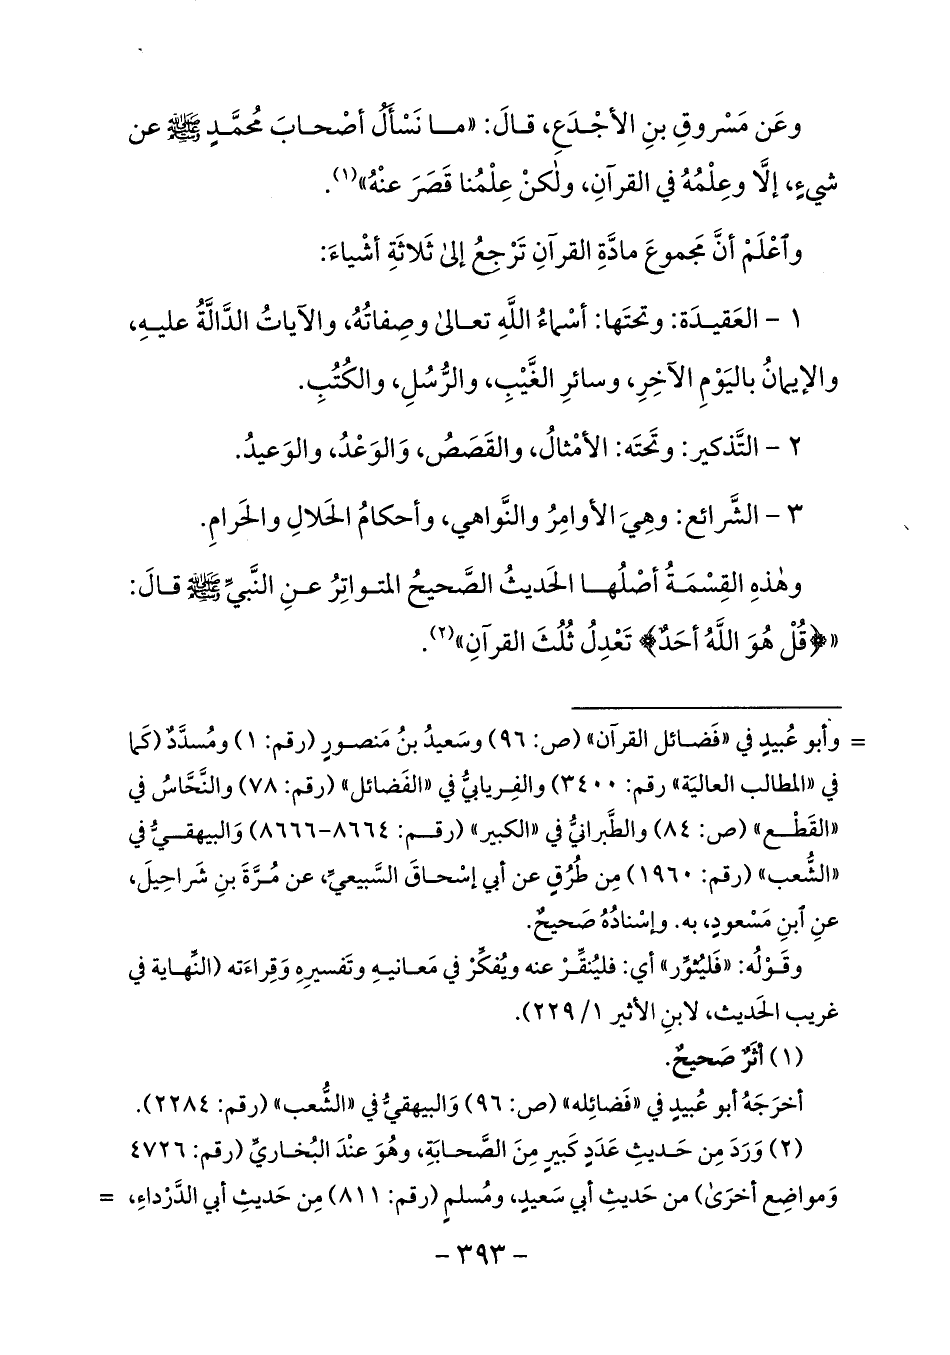 وعَن مَسْروقِ بنِ الأجْدَعِ، قالَ: «ما نَسْأَلُ أصْحابَ مُحمَّدٍ ﷺ عن
شيءٍ، إلَّا وعِلْمُهُ في القرآنِ، ولٰكنْ عِلْمُنا قَصَرَ عنْهُ»(١).
وٱعْلَمْ أنَّ مَجموعَ مادَّةِ القرآنِ تَرْجِعُ إلىٰ ثَلاثَةِ أشْياءَ:
١ - العَقيدَة: وتحتَها: أسْماءُ اللَّهِ تعالىٰ وصِفاتُهُ، والآياتُ الدَّالَّةُ عليهِ،
والإيمانُ باليَوْمِ الآخِرِ، وسائرِ الغَّيْبِ، والرُّسُلِ، والكُتُبِ.
٢ - التَّذكير: وتَحتَه: الأمْثالُ، والقَصَصُ، وَالوَعْدُ، والوَعيدُ.
٣ - الشَّرائع: وهِيَ الأوامِرُ والنَّواهي، وأحكامُ الحَلالِ والحَرامِ.
وهٰذهِ القِسْمَةُ أصْلُها الحَديثُ الصَّحيحُ المتواتِرُ عنِ النَّبيِّ ﷺ قالَ:
«﴿قُلْ هُوَ اللَّهُ أحَدٌ﴾ تَعْدِلُ ثُلُثَ القرآنِ»(٢).
= وأبو عُبيدٍ في «فَضائل القرآن» (ص: ٩٦) وسَعيدُ بنُ مَنصورٍ (رقم: ١) ومُسدَّدٌ (كَما
في «المطالب العالية» رقم: ٣٤٠٠) والفِريابيُّ في «الفَضائل» (رقم: ٧٨) والنَّحَّاسُ في
«القَطْع» (ص: ٨٤) والطَّبرانيُّ في «الكبير» (رقم: ٨٦٦٤-٨٦٦٦) وَالبيهقيُّ في
«الشُّعب» (رقم: ١٩٦٠) مِن طُرُقٍ عن أبي إسْحاقَ السَّبيعيِّ، عن مُرَّةَ بنِ شَراحيلَ،
عنِ ٱبنِ مَسْعودٍ، به. وإسْنادُهُ صَحيحٌ.
وقَوْلُه: «فَليُثوِّر» أي: فليُنقِّرْ عنه ويُفكِّرْ في مَعانيهِ وتَفسيرِهِ وَقِراءَته (النِّهاية في
غريب الحَديث، لابنِ الأثير ١/ ٢٢٩).
(١) أثَرٌ صَحيحٌ.
أخرَجَهُ أبو عُبيدٍ في «فَضائِله» (ص: ٩٦) وَالبيهقيُّ في «الشُّعب» (رقم: ٢٢٨٤).
(٢) وَرَدَ مِن حَديثِ عَدَدٍ كَبيرٍ مِنَ الصَّحابَةِ، وهُوَ عنْدَ البُخاريِّ (رقم: ٤٧٢٦
وَمواضِع أخرَىٰ) من حَديثِ أبي سَعيدٍ، ومُسلمٍ (رقم: ٨١١) مِن حَديثِ أبي الدَّرْداءِ، =
- ٣٩٣ -